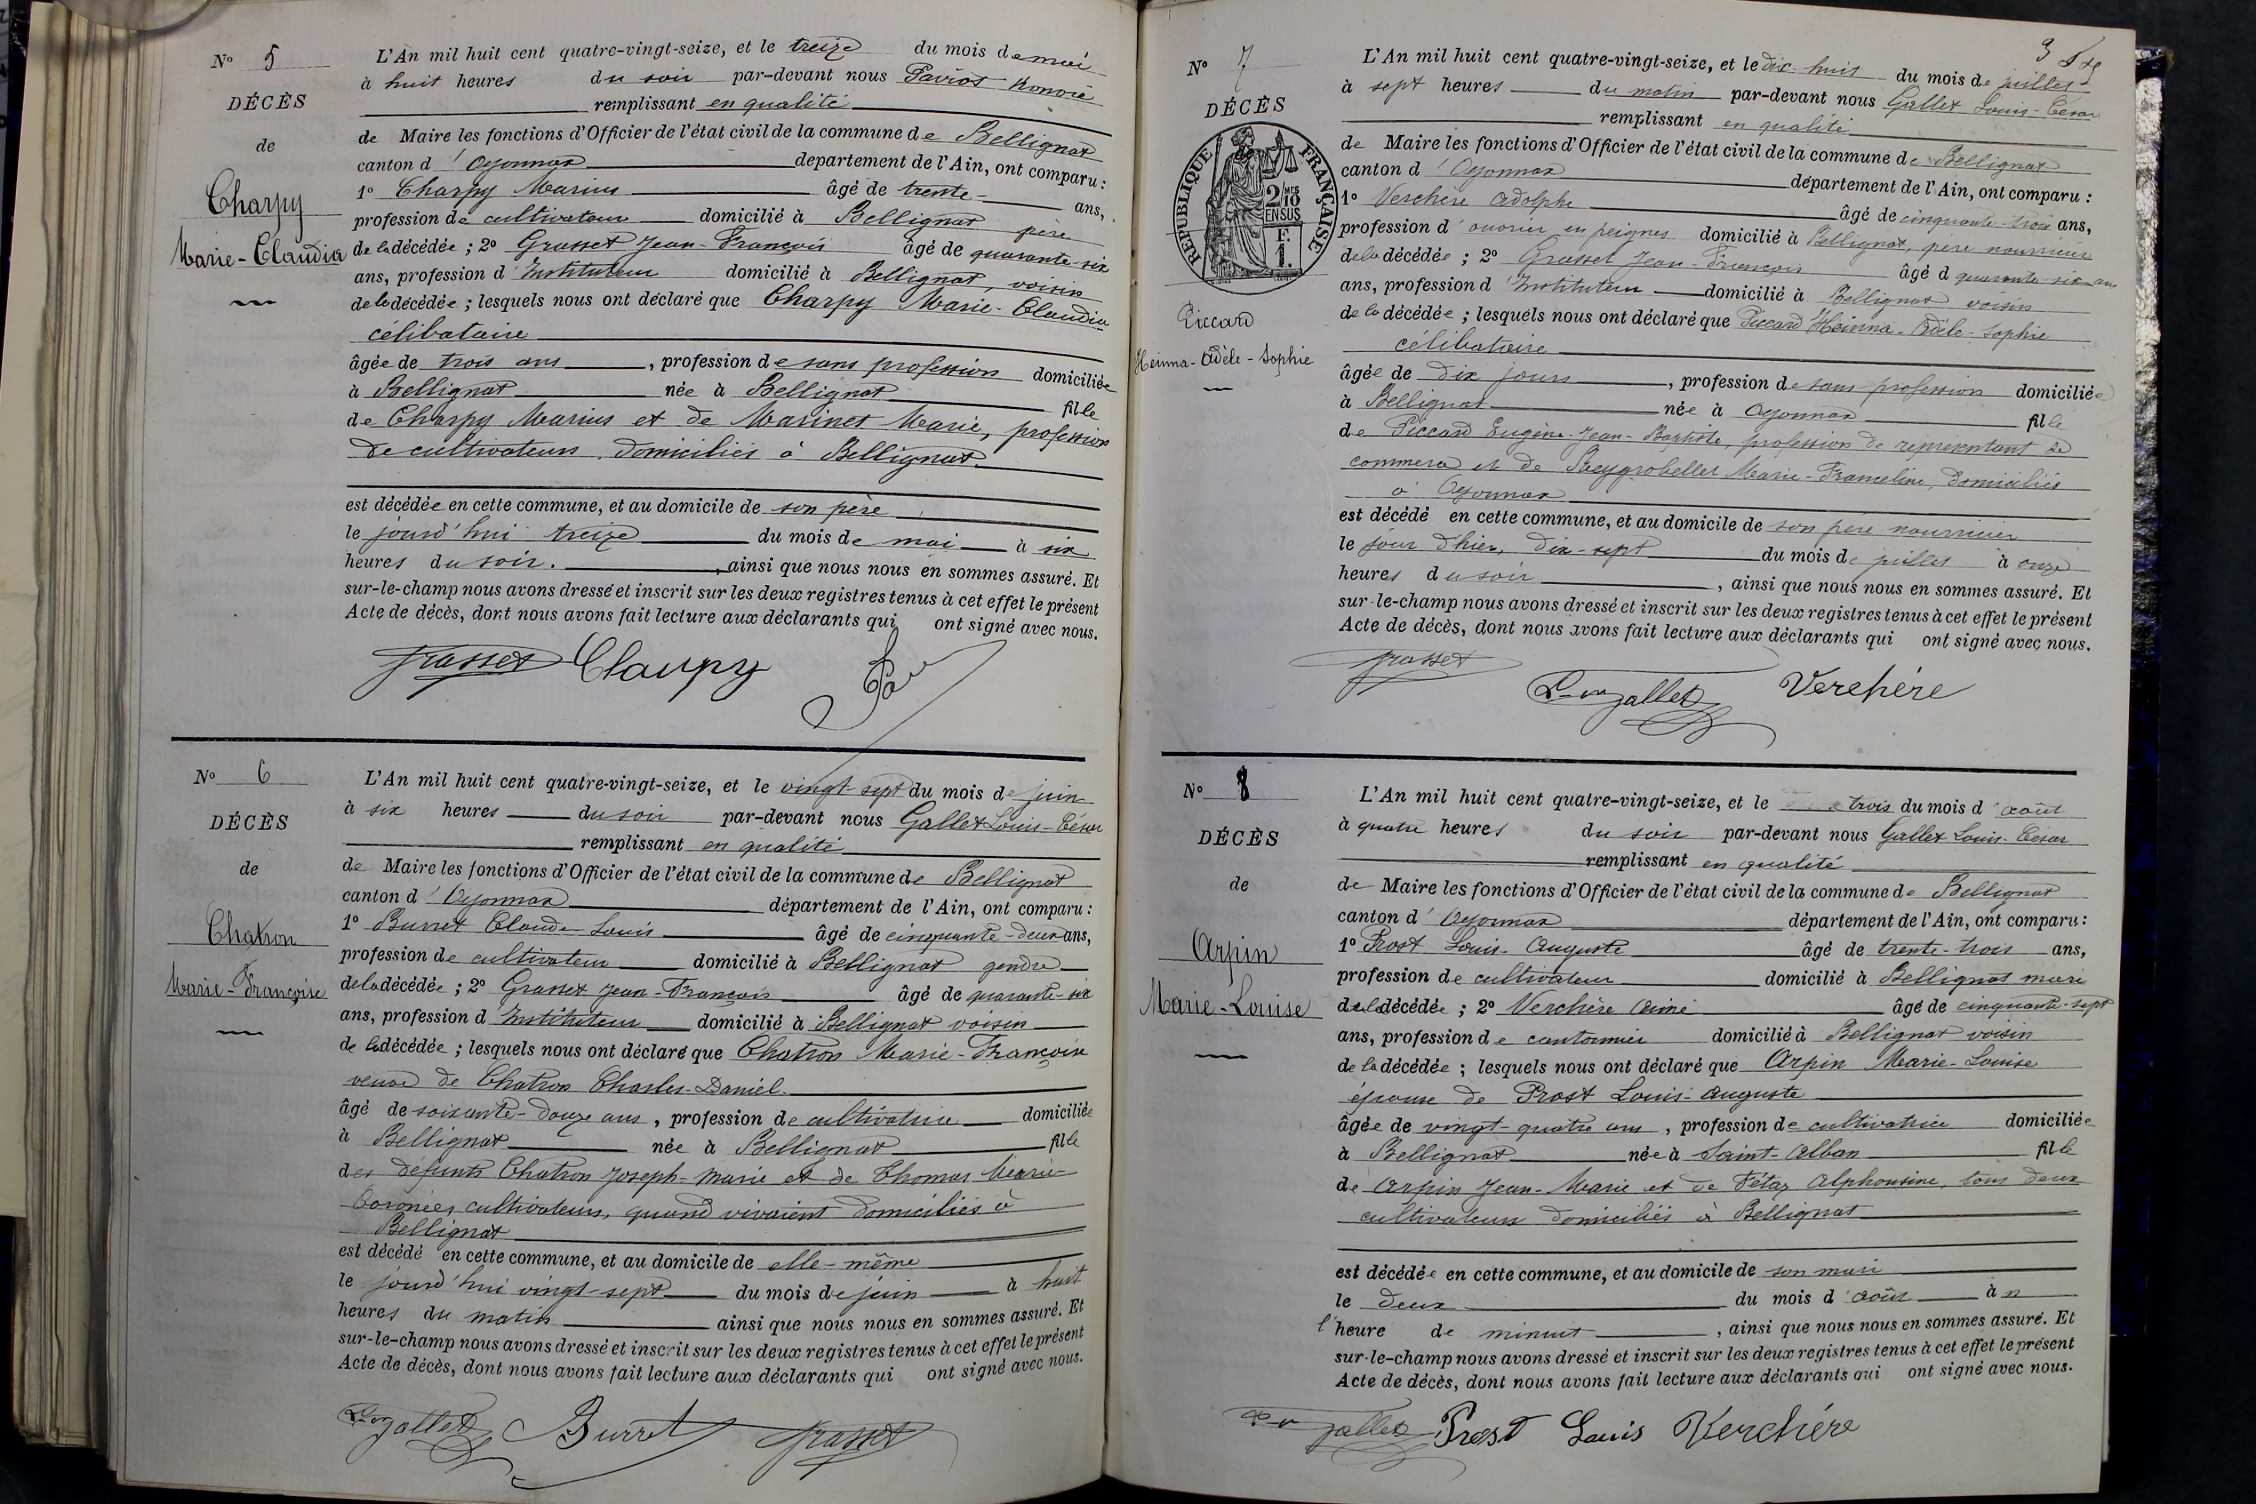 N° 5
DÉCÈS
de
Charpy
Marie-Claudia
L'An mil huit cent quatre-vingt-seize, et le treize du mois de mai
à huit heures du soir par-devant nous Paviot Honoré
remplissant en qualité
de Maire les fonctions d'Officier de l'état civil de la commune de Bellignat
canton d'Oyonnax departement de l'Ain, ont comparu :
1° Charpy Marius âgé de trente ans,
profession de cultivateur domicilié à Bellignat père
de la décédée ; 2° Grasset Jean-François âgé de quarante-six
ans, profession d'Instituteur domicilié à Bellignat, voisin
de la décédée ; lesquels nous ont déclaré que Charpy Marie-Claudia
célibataire
âgée de trois ans, profession de sans profession domiciliée
à Bellignat née à Bellignat fille
de Charpy Marius et de Marinet Marie, profession
de cultivateurs domiciliés à Bellignat
est décédée en cette commune, et au domicile de son père
le jourd'hui treize du mois de mai à six
heures du soir, ainsi que nous nous en sommes assuré. Et
sur-le-champ nous avons dressé et inscrit sur les deux registres tenus à cet effet le présent
Acte de décès, dont nous avons fait lecture aux déclarants qui ont signé avec nous.
Grasset Charpy
N° 6
DÉCÈS
de
Chatron
Marie-Françoise
L'An mil huit cent quatre-vingt-seize, et le vingt-sept du mois de juin
à six heures du soir par-devant nous Gallet Louis-César
remplissant en qualité
de Maire les fonctions d'Officier de l'état civil de la commune de Bellignat
canton d'Oyonnax département de l'Ain, ont comparu :
1° Burret Claude Louis âgé de cinquante-deux ans,
profession de cultivateur domicilié à Bellignat gendre
de la décédée ; 2° Grasset Jean-François âgé de quarante-six
ans, profession d'Instituteur domicilié à Bellignat voisin
de la décédée ; lesquels nous ont déclaré que Chatron Marie-Françoise
veuve de Chatron Charles-Daniel
âgé de soixante-douze ans, profession de cultivatrice domiciliée
à Bellignat née à Bellignat fille
des défunts Chatron Joseph-Marie et de Thomas Marie-
cultivateurs, quand vivaient domiciliés à
Bellignat
est décédé en cette commune, et au domicile de elle-même
le jourd'hui vingt-sept du mois de juin à huit
heures du matin ainsi que nous nous en sommes assuré. Et
sur-le-champ nous avons dressé et inscrit sur les deux registres tenus à cet effet le présent
Acte de décès, dont nous avons fait lecture aux déclarants qui ont signé avec nous.
Gallet Burret Grasset
3
N° 7
DÉCÈS
RÉPUBLIQUE FRANÇAISE
2 MES 10 EN SUS
F. 1.
Piccard
Heinna-Adèle-Sophie
L'An mil huit cent quatre-vingt-seize, et le dix-huit du mois de juillet
à sept heures du matin par-devant nous Gallet Louis-César
remplissant en qualité
de Maire les fonctions d'Officier de l'état civil de la commune de Bellignat
canton d'Oyonnax département de l'Ain, ont comparu :
1° Verchère Adolphe âgé de cinquante-trois ans,
profession d'ouvrier en peignes domicilié à Bellignat, père nourricier
de la décédée ; 2° Grasset Jean-François âgé d quarante-six ans
ans, profession d'Instituteur domicilié à Bellignat voisin
de la décédée ; lesquels nous ont déclaré que Piccard Heinna-Adèle-Sophie
célibataire
âgée de dix jours, profession de sans profession domiciliée
à Bellignat née à Oyonnax fille
de Piccard Eugène-Jean-Baptiste, profession de représentant de
commerce et de Marie-Franceline, domiciliés
à Oyonnax
est décédé en cette commune, et au domicile de son père nourricier
le jour d'hier, dix-sept du mois de juillet à onze
heures du soir, ainsi que nous nous en sommes assuré. Et
sur-le-champ nous avons dressé et inscrit sur les deux registres tenus à cet effet le présent
Acte de décès, dont nous avons fait lecture aux déclarants qui ont signé avec nous.
Grasset Gallet Verchère
N° 8
DÉCÈS
de
Arpin
Marie-Louise
L'An mil huit cent quatre-vingt-seize, et le trois du mois d'août
à quatre heures du soir par-devant nous Gallet Louis-César
remplissant en qualité
de Maire les fonctions d'Officier de l'état civil de la commune de Bellignat
canton d'Oyonnax département de l'Ain, ont comparu :
1° Prost Louis-Auguste âgé de trente-trois ans,
profession de cultivateur domicilié à Bellignat mari
de la décédée ; 2° Verchère Aimé âgé de cinquante-sept
ans, profession de cantonnier domicilié à Bellignat voisin
de la décédée ; lesquels nous ont déclaré que Arpin Marie-Louise
épouse de Prost Louis-Auguste
âgée de vingt-quatre ans, profession de cultivatrice domiciliée
à Bellignat née à Saint-Alban fille
de Arpin Jean-Marie et de Fétaz Alphonsine, tous deux
cultivateurs domiciliés à Bellignat
est décédée en cette commune, et au domicile de son mari
le deux du mois d'août à
l'heure de minuit, ainsi que nous nous en sommes assuré. Et
sur-le-champ nous avons dressé et inscrit sur les deux registres tenus à cet effet le présent
Acte de décès, dont nous avons fait lecture aux déclarants qui ont signé avec nous.
Gallet Prost Louis Verchère